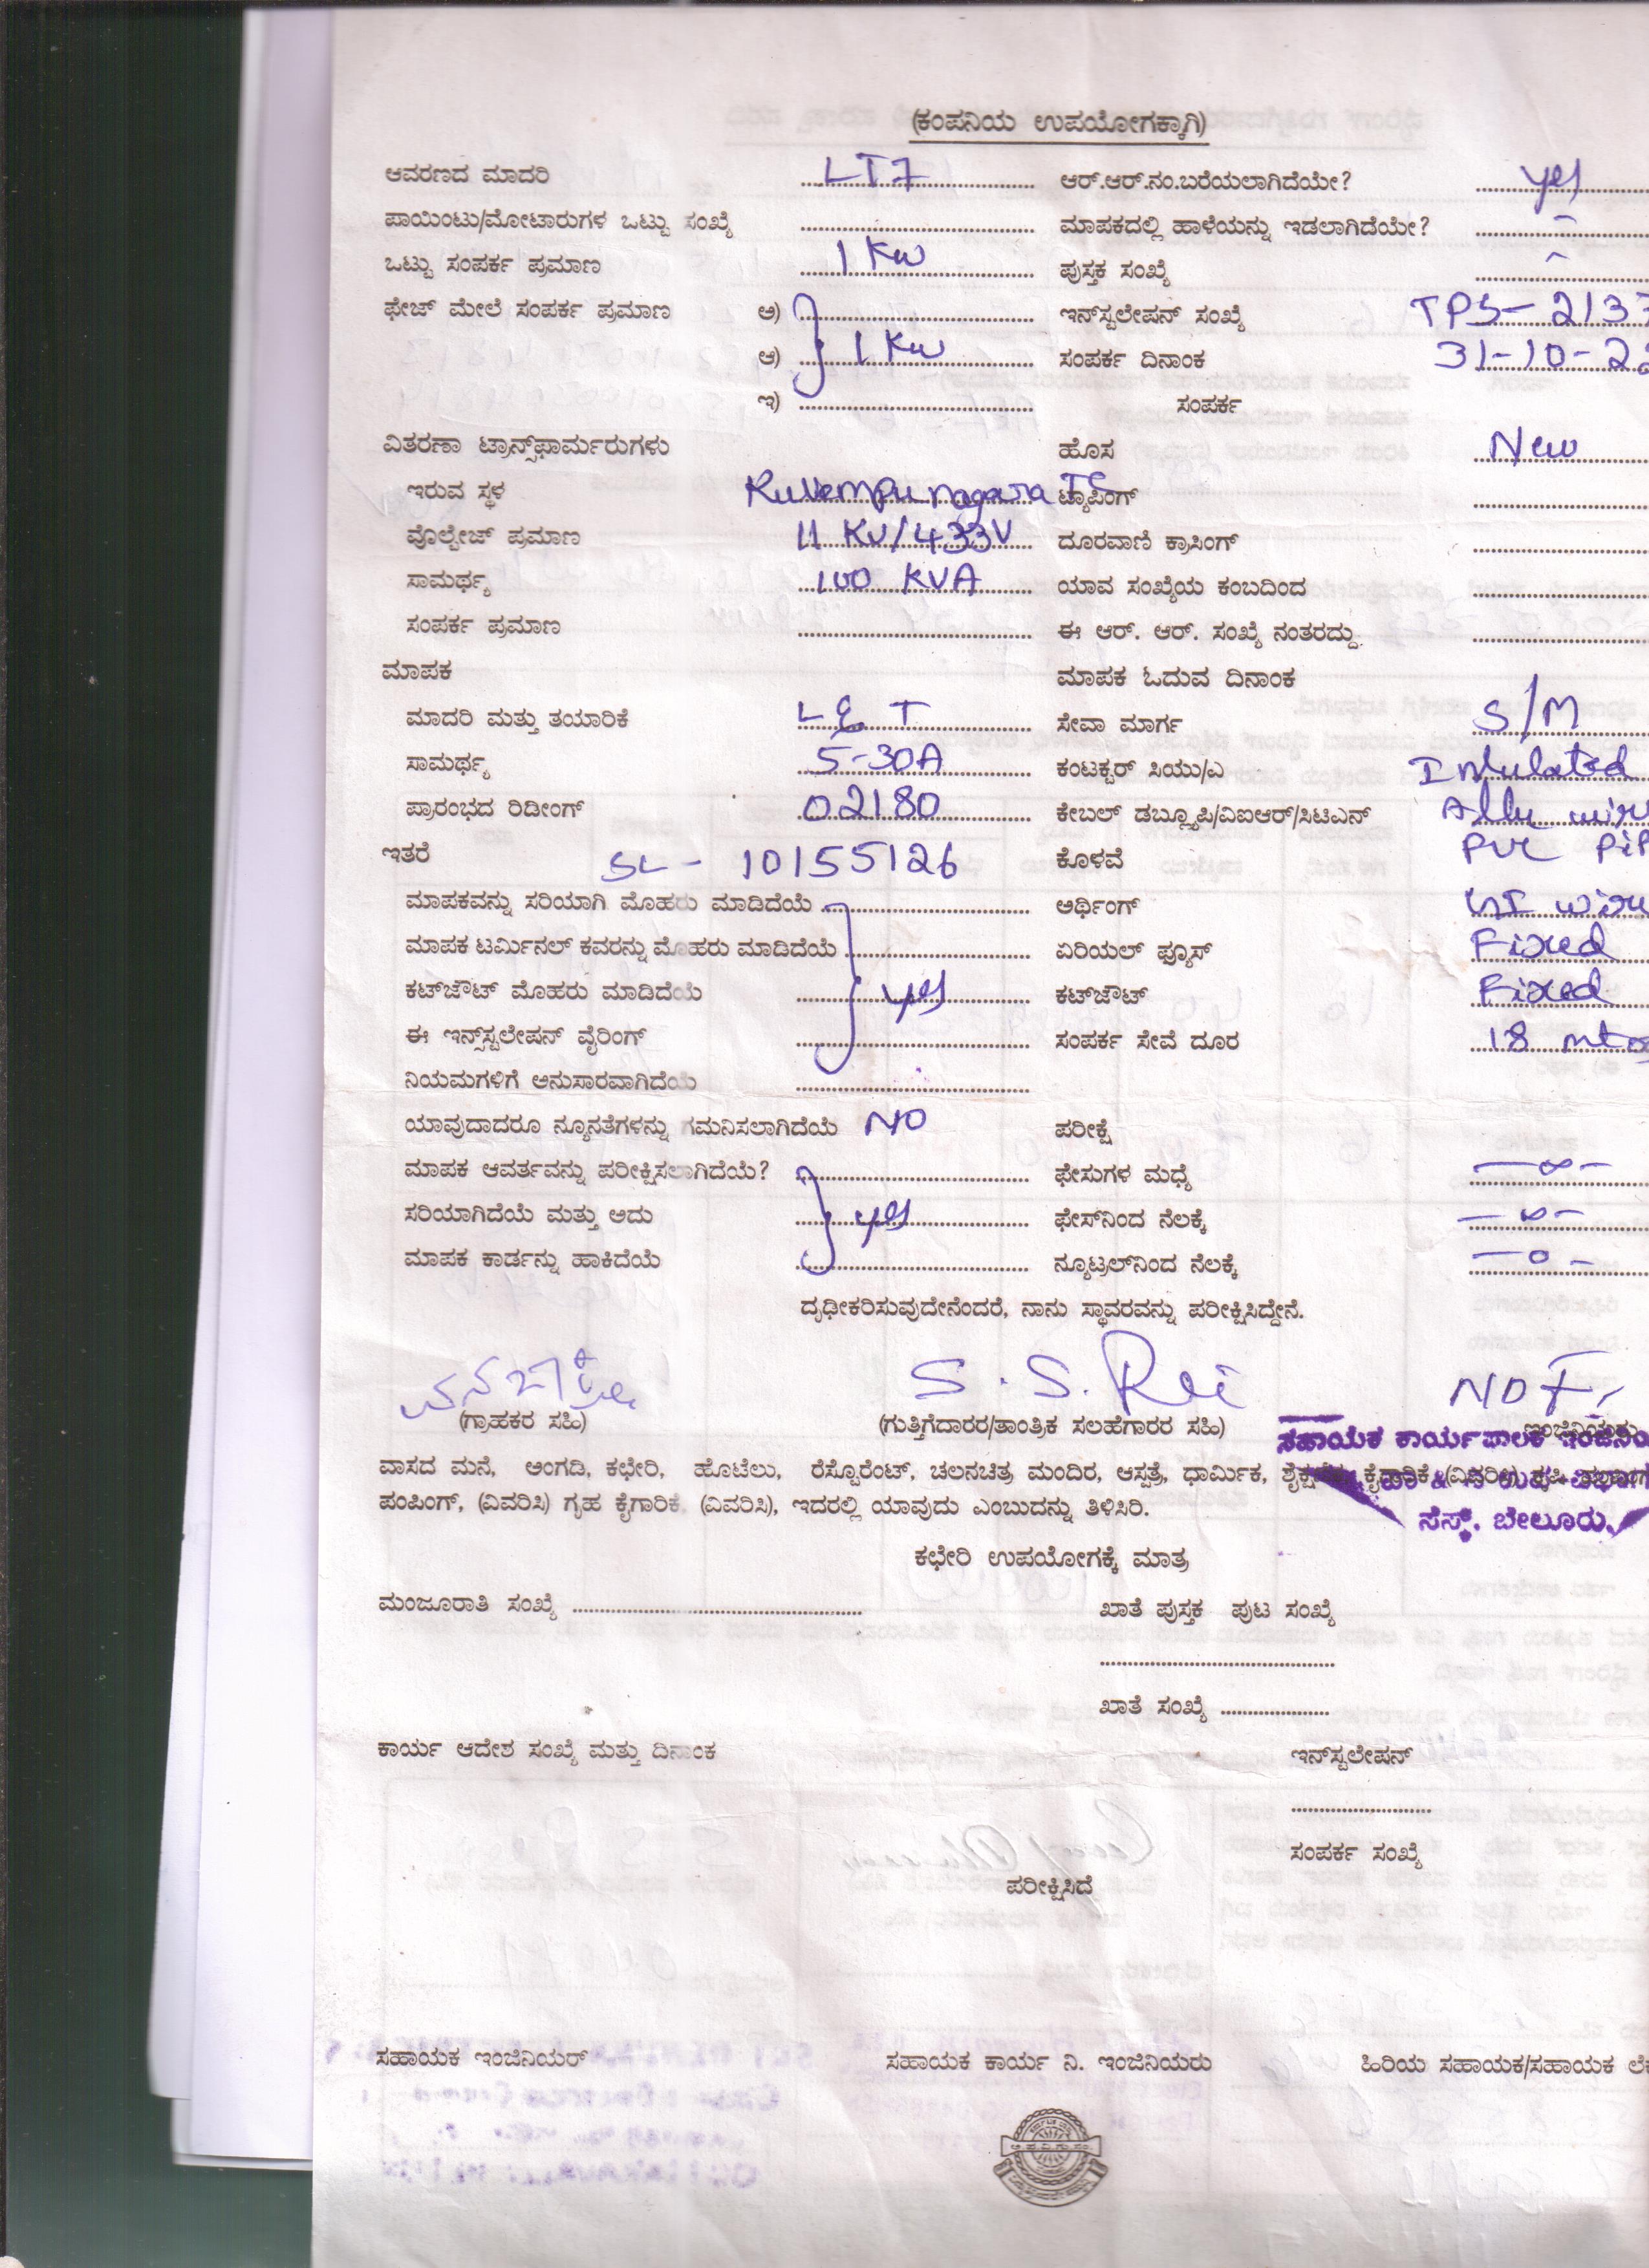 (ಕಂಪನಿಯ ಉಪಯೋಗಕ್ಕಾಗಿ)
ಆವರಣದ ಮಾದರಿ LT7 ಆರ್.ಆರ್.ನಂ.ಬರೆಯಲಾಗಿದೆಯೇ? yes
ಪಾಯಿಂಟು/ಮೋಟಾರುಗಳ ಒಟ್ಟು ಸಂಖ್ಯೆ ಮಾಪಕದಲ್ಲಿ ಹಾಳೆಯನ್ನು ಇಡಲಾಗಿದೆಯೇ? -
ಒಟ್ಟು ಸಂಪರ್ಕ ಪ್ರಮಾಣ 1 Kw ಪುಸ್ತಕ ಸಂಖ್ಯೆ -
ಫೇಜ್ ಮೇಲೆ ಸಂಪರ್ಕ ಪ್ರಮಾಣ ಅ) ಇನ್‌ಸ್ಟಲೇಷನ್ ಸಂಖ್ಯೆ TPS-2137
ಆ) 1 Kw ಸಂಪರ್ಕ ದಿನಾಂಕ 31-10-22
ಇ) ಸಂಪರ್ಕ
ವಿತರಣಾ ಟ್ರಾನ್ಸ್‌ಫಾರ್ಮರುಗಳು ಹೊಸ New
ಇರುವ ಸ್ಥಳ Kuvempu nagara TC ಟ್ಯಾಪಿಂಗ್
ವೊಲ್ಟೇಜ್ ಪ್ರಮಾಣ 11 KV/433V ದೂರವಾಣಿ ಕ್ರಾಸಿಂಗ್
ಸಾಮರ್ಥ್ಯ 100 KVA ಯಾವ ಸಂಖ್ಯೆಯ ಕಂಬದಿಂದ
ಸಂಪರ್ಕ ಪ್ರಮಾಣ ಈ ಆರ್. ಆರ್. ಸಂಖ್ಯೆ ನಂತರದ್ದು
ಮಾಪಕ ಮಾಪಕ ಓದುವ ದಿನಾಂಕ
ಮಾದರಿ ಮತ್ತು ತಯಾರಿಕೆ L & T ಸೇವಾ ಮಾರ್ಗ S/M
ಸಾಮರ್ಥ್ಯ 5-30A ಕಂಟಕ್ಟರ್ ಸಿಯು/ಎ Insulated
ಪ್ರಾರಂಭದ ರಿಡೀಂಗ್ 02180 ಕೇಬಲ್ ಡಬ್ಲ್ಯೂಪಿ/ವಿಐಆರ್/ಸಿಟಿಎನ್
ಇತರೆ SL- 10155126 ಕೊಳವೆ PVC
ಮಾಪಕವನ್ನು ಸರಿಯಾಗಿ ಮೊಹರು ಮಾಡಿದೆಯೆ ಅರ್ಥಿಂಗ್
ಮಾಪಕ ಟರ್ಮಿನಲ್ ಕವರನ್ನು ಮೊಹರು ಮಾಡಿದೆಯೆ ಏರಿಯಲ್ ಫ್ಯೂಸ್ Fixed
ಕಟ್‌ಜೌಟ್ ಮೊಹರು ಮಾಡಿದೆಯೆ yes ಕಟ್‌ಜೌಟ್ Fixed
ಈ ಇನ್ಸ್‌ಸ್ಟಲೇಷನ್ ವೈರಿಂಗ್ ಸಂಪರ್ಕ ಸೇವೆ ದೂರ 18 mtrs
ನಿಯಮಗಳಿಗೆ ಅನುಸಾರವಾಗಿದೆಯೆ
ಯಾವುದಾದರೂ ನ್ಯೂನತೆಗಳನ್ನು ಗಮನಿಸಲಾಗಿದೆಯೆ NO ಪರೀಕ್ಷೆ
ಮಾಪಕ ಆವರ್ತವನ್ನು ಪರೀಕ್ಷಿಸಲಾಗಿದೆಯೆ? ಫೇಸುಗಳ ಮಧ್ಯೆ -∞-
ಸರಿಯಾಗಿದೆಯೆ ಮತ್ತು ಅದು yes ಫೇಸ್‌ನಿಂದ ನೆಲಕ್ಕೆ -∞-
ಮಾಪಕ ಕಾರ್ಡನ್ನು ಹಾಕಿದೆಯೆ ನ್ಯೂಟ್ರಲ್‌ನಿಂದ ನೆಲಕ್ಕೆ -0-
ದೃಢೀಕರಿಸುವುದೇನೆಂದರೆ, ನಾನು ಸ್ಥಾವರವನ್ನು ಪರೀಕ್ಷಿಸಿದ್ದೇನೆ.
(ಗ್ರಾಹಕರ ಸಹಿ) (ಗುತ್ತಿಗೆದಾರರ/ತಾಂತ್ರಿಕ ಸಲಹೆಗಾರರ ಸಹಿ)
ಸಹಾಯಕ ಕಾರ್ಯಪಾಲಕ
ವಾಸದ ಮನೆ, ಅಂಗಡಿ, ಕಛೇರಿ, ಹೊಟೆಲು, ರೆಸ್ಟೊರೆಂಟ್, ಚಲನಚಿತ್ರ ಮಂದಿರ, ಆಸ್ಪತ್ರೆ, ಧಾರ್ಮಿಕ,
ಪಂಪಿಂಗ್, (ವಿವರಿಸಿ) ಗೃಹ ಕೈಗಾರಿಕೆ, (ವಿವರಿಸಿ), ಇದರಲ್ಲಿ ಯಾವುದು ಎಂಬುದನ್ನು ತಿಳಿಸಿರಿ.
ಸೆಸ್ಕ್, ಬೇಲೂರು.
ಕಛೇರಿ ಉಪಯೋಗಕ್ಕೆ ಮಾತ್ರ
ಮಂಜೂರಾತಿ ಸಂಖ್ಯೆ ಖಾತೆ ಪುಸ್ತಕ ಪುಟ ಸಂಖ್ಯೆ
ಖಾತೆ ಸಂಖ್ಯೆ
ಕಾರ್ಯ ಆದೇಶ ಸಂಖ್ಯೆ ಮತ್ತು ದಿನಾಂಕ ಇನ್‌ಸ್ಟಲೇಷನ್
ಸಂಪರ್ಕ ಸಂಖ್ಯೆ
ಪರೀಕ್ಷಿಸಿದೆ
ಸಹಾಯಕ ಇಂಜಿನಿಯರ್ ಸಹಾಯಕ ಕಾರ್ಯ ನಿ. ಇಂಜಿನಿಯರು ಹಿರಿಯ ಸಹಾಯಕ/ಸಹಾಯಕ